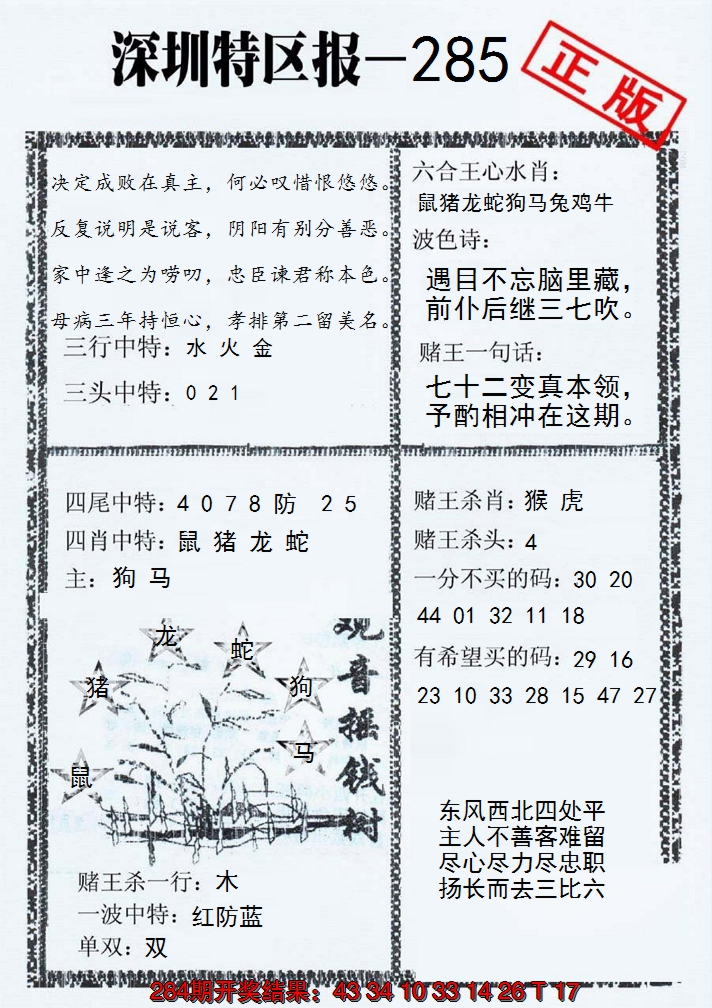 深圳特区报－285
正版
决定成败在真主，何必叹惜恨悠悠。
反复说明是说客，阴阳有别分善恶。
家中逢之为唠叨，忠臣谏君称本色。
母病三年持恒心，孝排第二留美名。
三行中特：水 火 金
三头中特：0 2 1
六合王心水肖：
鼠猪龙蛇狗马兔鸡牛
波色诗：
遇目不忘脑里藏，
前仆后继三七吹。
赌王一句话：
七十二变真本领，
予酌相冲在这期。
四尾中特：4 0 7 8 防 2 5
四肖中特：鼠 猪 龙 蛇
主：狗 马
龙
蛇
猪
狗
马
鼠
观音摇钱树
赌王杀一行：木
一波中特：红防蓝
单双：双
赌王杀肖：猴 虎
赌王杀头：4
一分不买的码：30 20
44 01 32 11 18
有希望买的码：29 16
23 10 33 28 15 47 27
东风西北四处平
主人不善客难留
尽心尽力尽忠职
扬长而去三比六
284期开奖结果：43 34 10 33 14 26 T 17